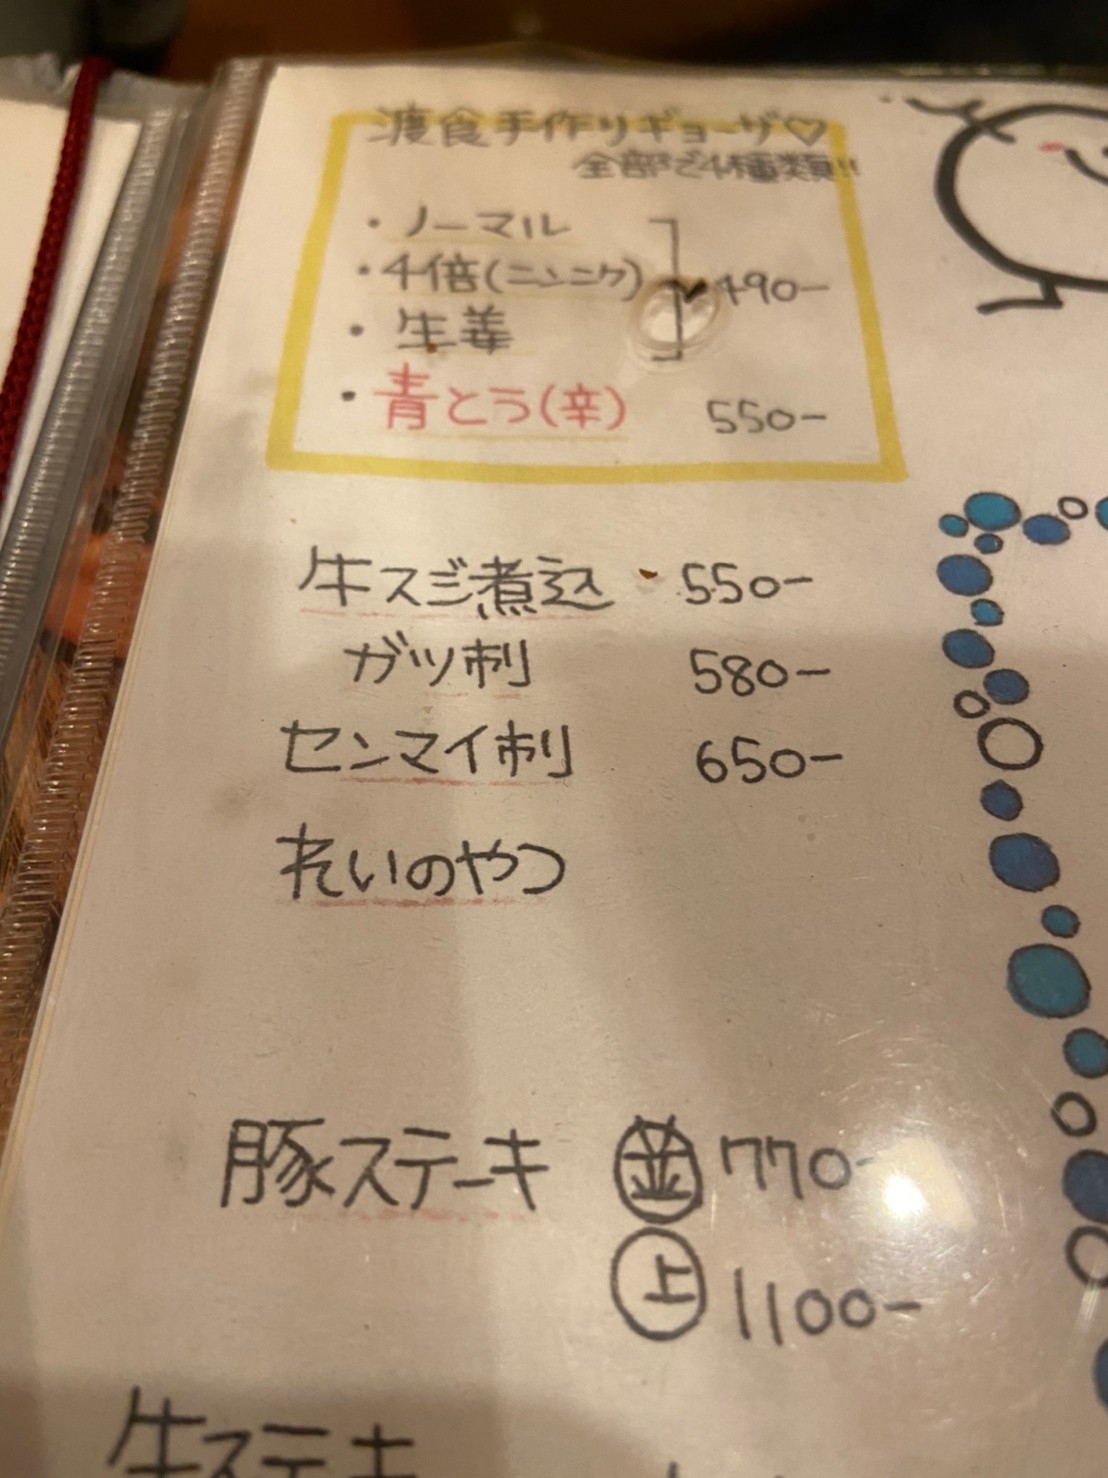 渡食手作りギョーザ♡
全部で4種類!!
・ノーマル
・4倍(ニンニク) 490-
・生姜
・青とう(辛) 550-
牛スジ煮込 550-
ガツ刺 580-
センマイ刺 650-
れいのやつ
豚ステーキ 並 770-
上 1100-
牛ステキ